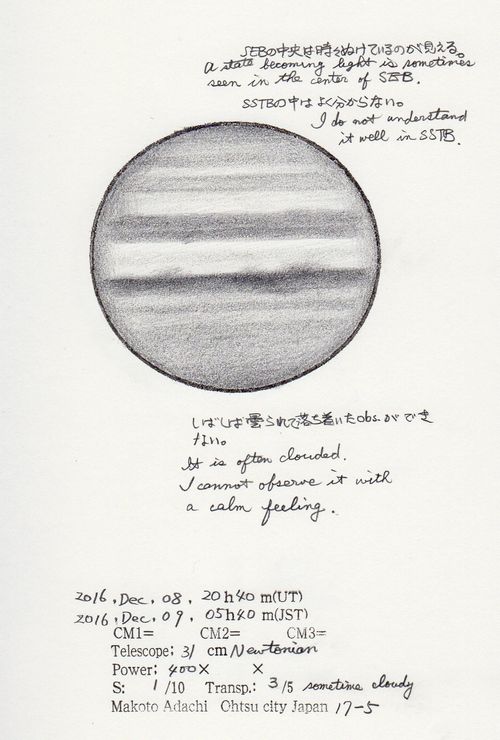 SEBの中央は時々ぬけているのが見える。
A state becoming light is sometimes
seen in the center of SEB.
SSTBの中はよく分からない。
I do not understand
it well in SSTB.
しばしば曇られて落ち着いたobs.ができ
ない。
It is often clouded.
I cannot observe it with
a calm feeling.
2016, Dec, 08, 20h40 m(UT)
2016, Dec, 09, 05h40 m(JST)
CM1= CM2= CM3=
Telescope; 31 cm Newtonian
Power; 400× ×
S: 1 /10 Transp.; 3 /5 sometime cloudy
Makoto Adachi Ohtsu city Japan 17-5